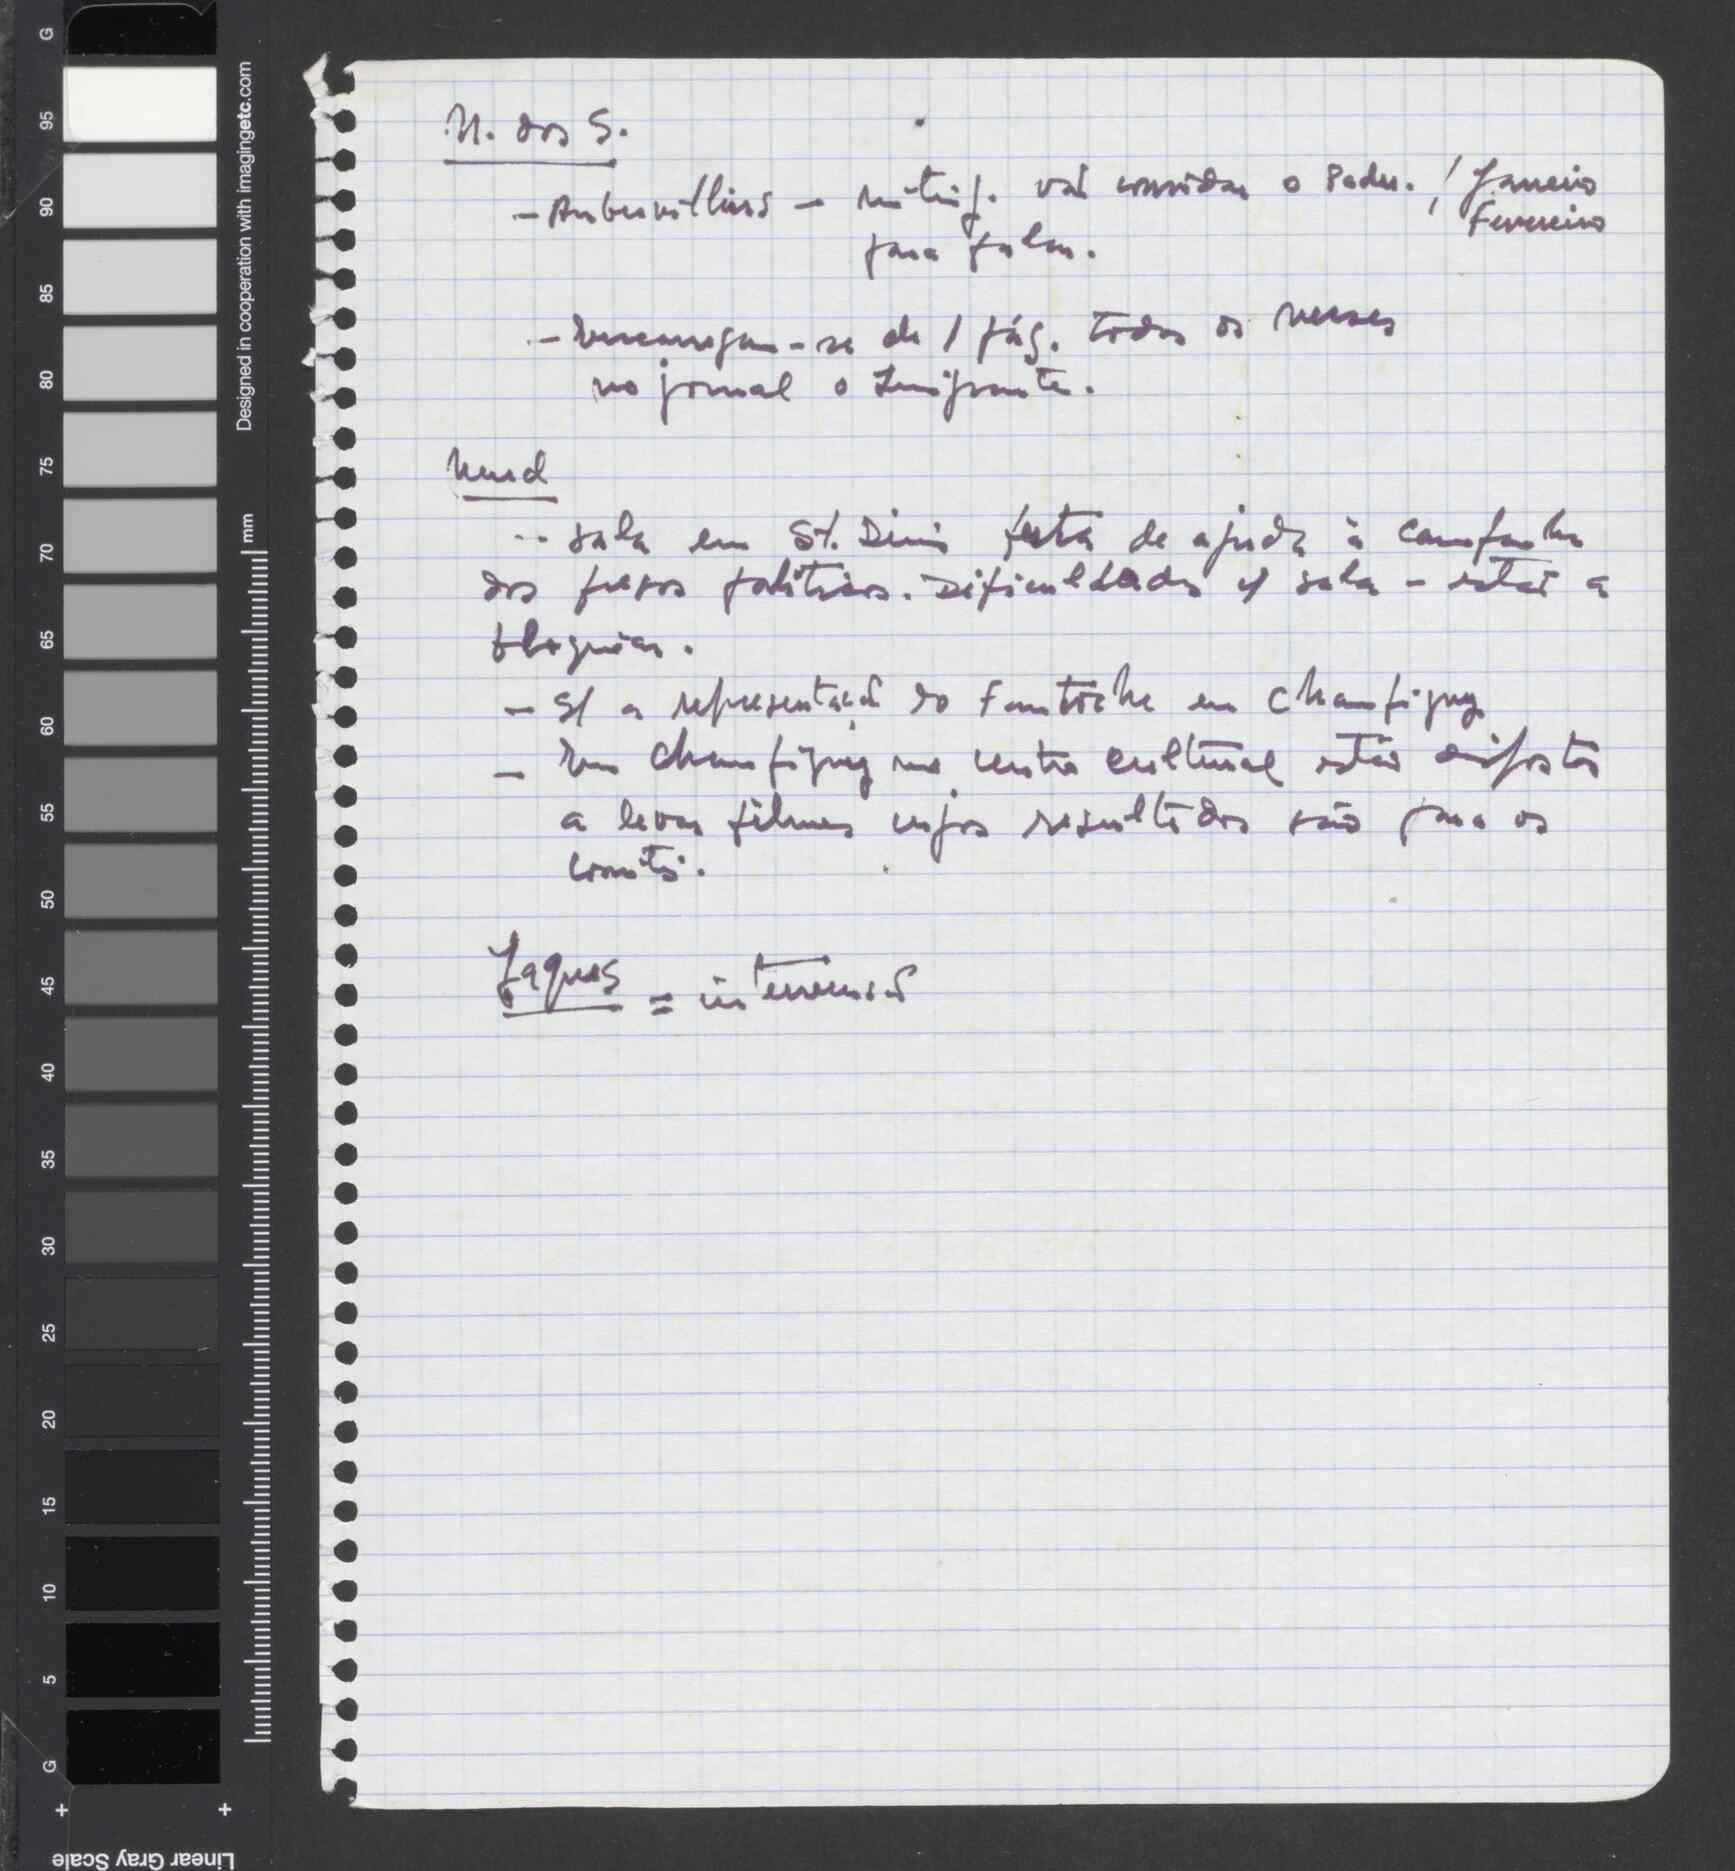 G
95
90
85
80
75
70
65
60
55
50
45
40
35
30
25
20
15
10
5
G
Designed in cooperation with imagingetc.com
mm
Linear Gray Scale
dos S.
- Aubervilliers - miting. vão convidar o Padre. / Janeiro
Fevereiro
para falar.
- Encarregam-se de 1 pág. todos os meses
no jornal o Emigrante.
-- sala em St. Dinis festa de ajuda à campanha
dos presos políticos. Dificuldades c/ sala - estão a
bloquear.
- S/ a representação do Fantoche em Champigny
- Em Champigny no centro cultural estão dispostos
a levar filmes cujos resultados são para os
comités.
Jaques = intervenção